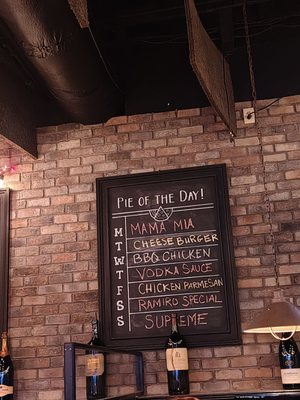 PIE OF THE DAY!
M MAMA MIA
T CHEESE BURGER
W BBQ CHICKEN
T VODKA SAUCE
F CHICKEN PARMESAN
S RAMIRO SPECIAL
S SUPREME